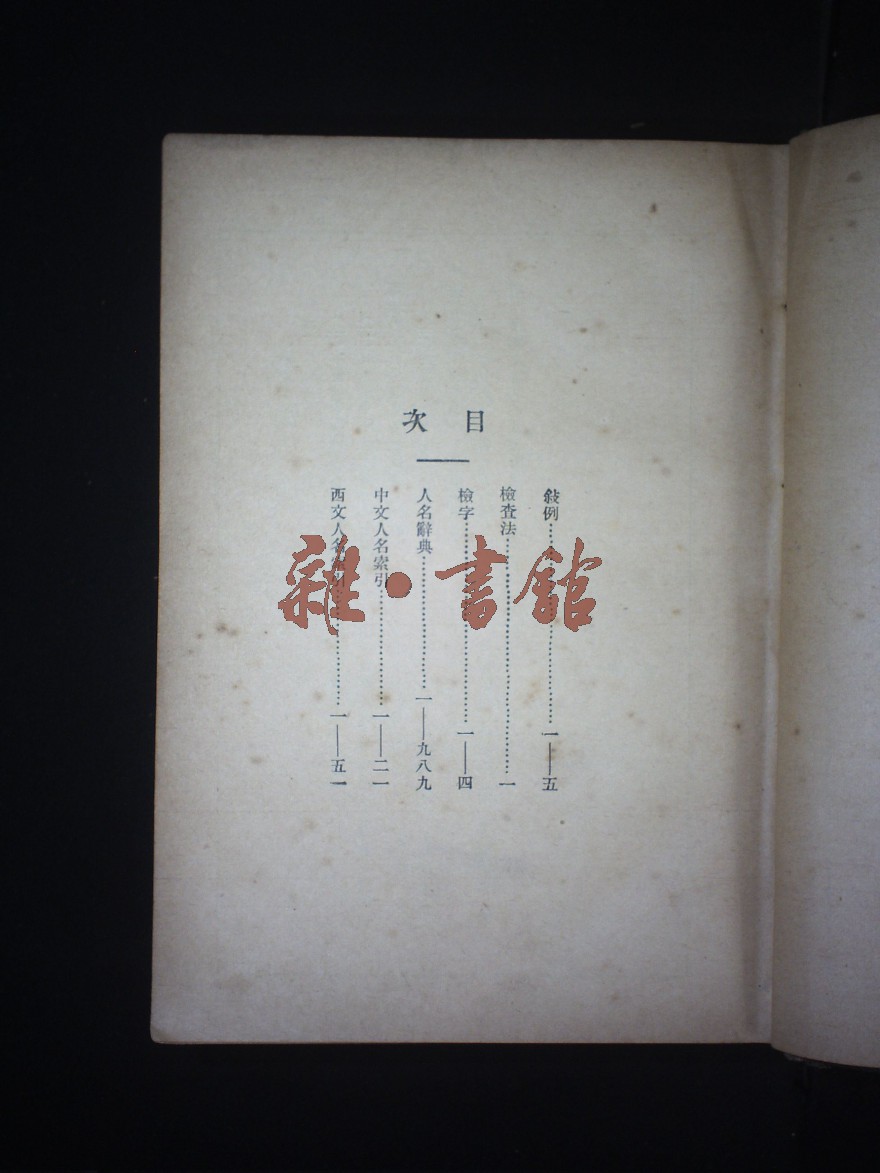 目次
敍例……一——五
檢查法……一
檢字……一——四
人名辭典……一——九八九
中文人名索引……一——二一
西文人名索引……一——五一
雜·書館